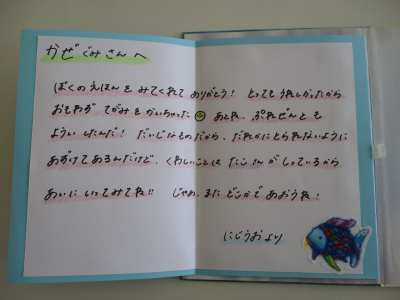 かぜぐみさんへ
ぼくのえほんを みてくれて ありがとう! とっても うれしかったから
おもわず てがみを かいちゃった あとね、ぷれぜんとも
よういしたんだ! だいじなものだから、だれかにとられないように
あずけてあるんだけど、くわしいことは たこさんが しっているから
あいに いってみてね!! じゃあ、また どこかで あおうね!
にじうおより